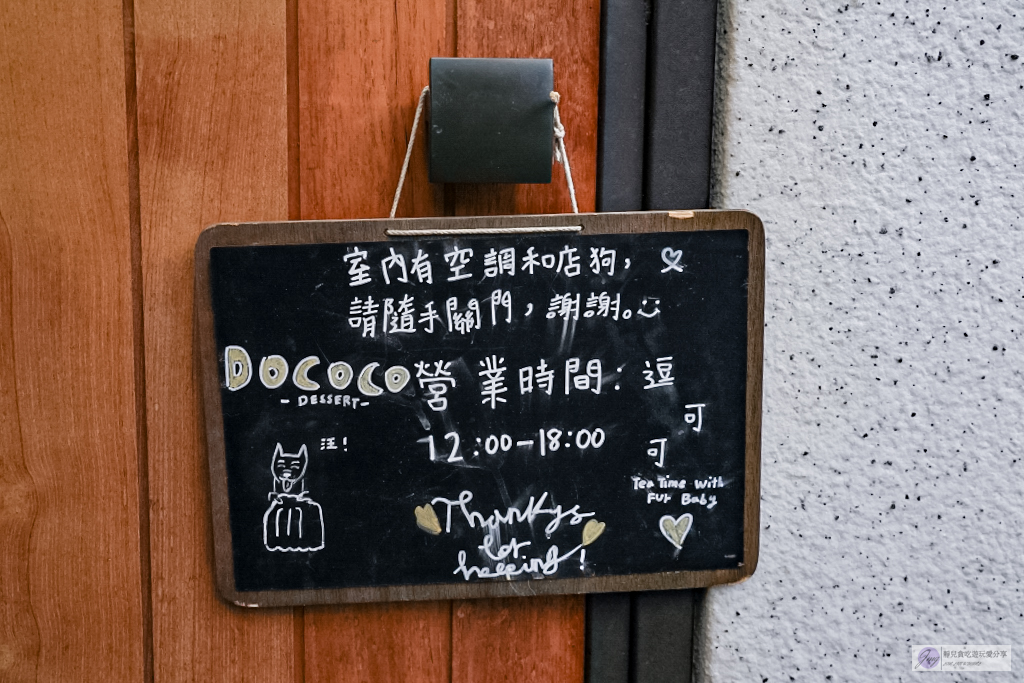 室內有空調和店狗，
請隨手關門，謝謝。
DOCOCO
-DESSERT-
營業時間：
12:00-18:00
逗
可
可
Tea Time With
Fur Baby
汪！
Thankys
for
helping!
輕兒貪吃遊玩愛分享